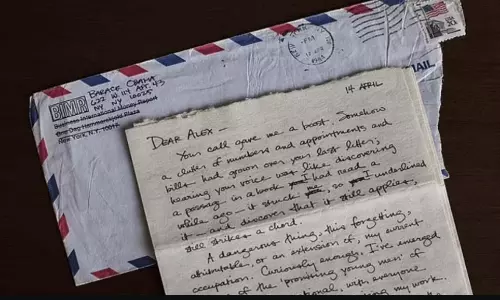 BARACK OBAMA
622 W. 114 APT. 43
NY NY 10025
BIMR
Business International Money Report
One Dag Hammarskjold Plaza
New York, N.Y. 10017
MAIL
14 APRIL
DEAR ALEX —
Your call gave me a boost. Somehow
a clutter of numbers and appointments and
bills had grown over your last letter;
hearing your voice was like discovering
a passage in a book I had read a
while ago — it struck me, so I underlined
it — and discover that it still applies,
still strikes a chord.
A dangerous thing, this forgetting,
attributable, or an extension of, my current
occupation. Curiously enough, I've emerged
of the "promising young men" of
with everyone
my work.